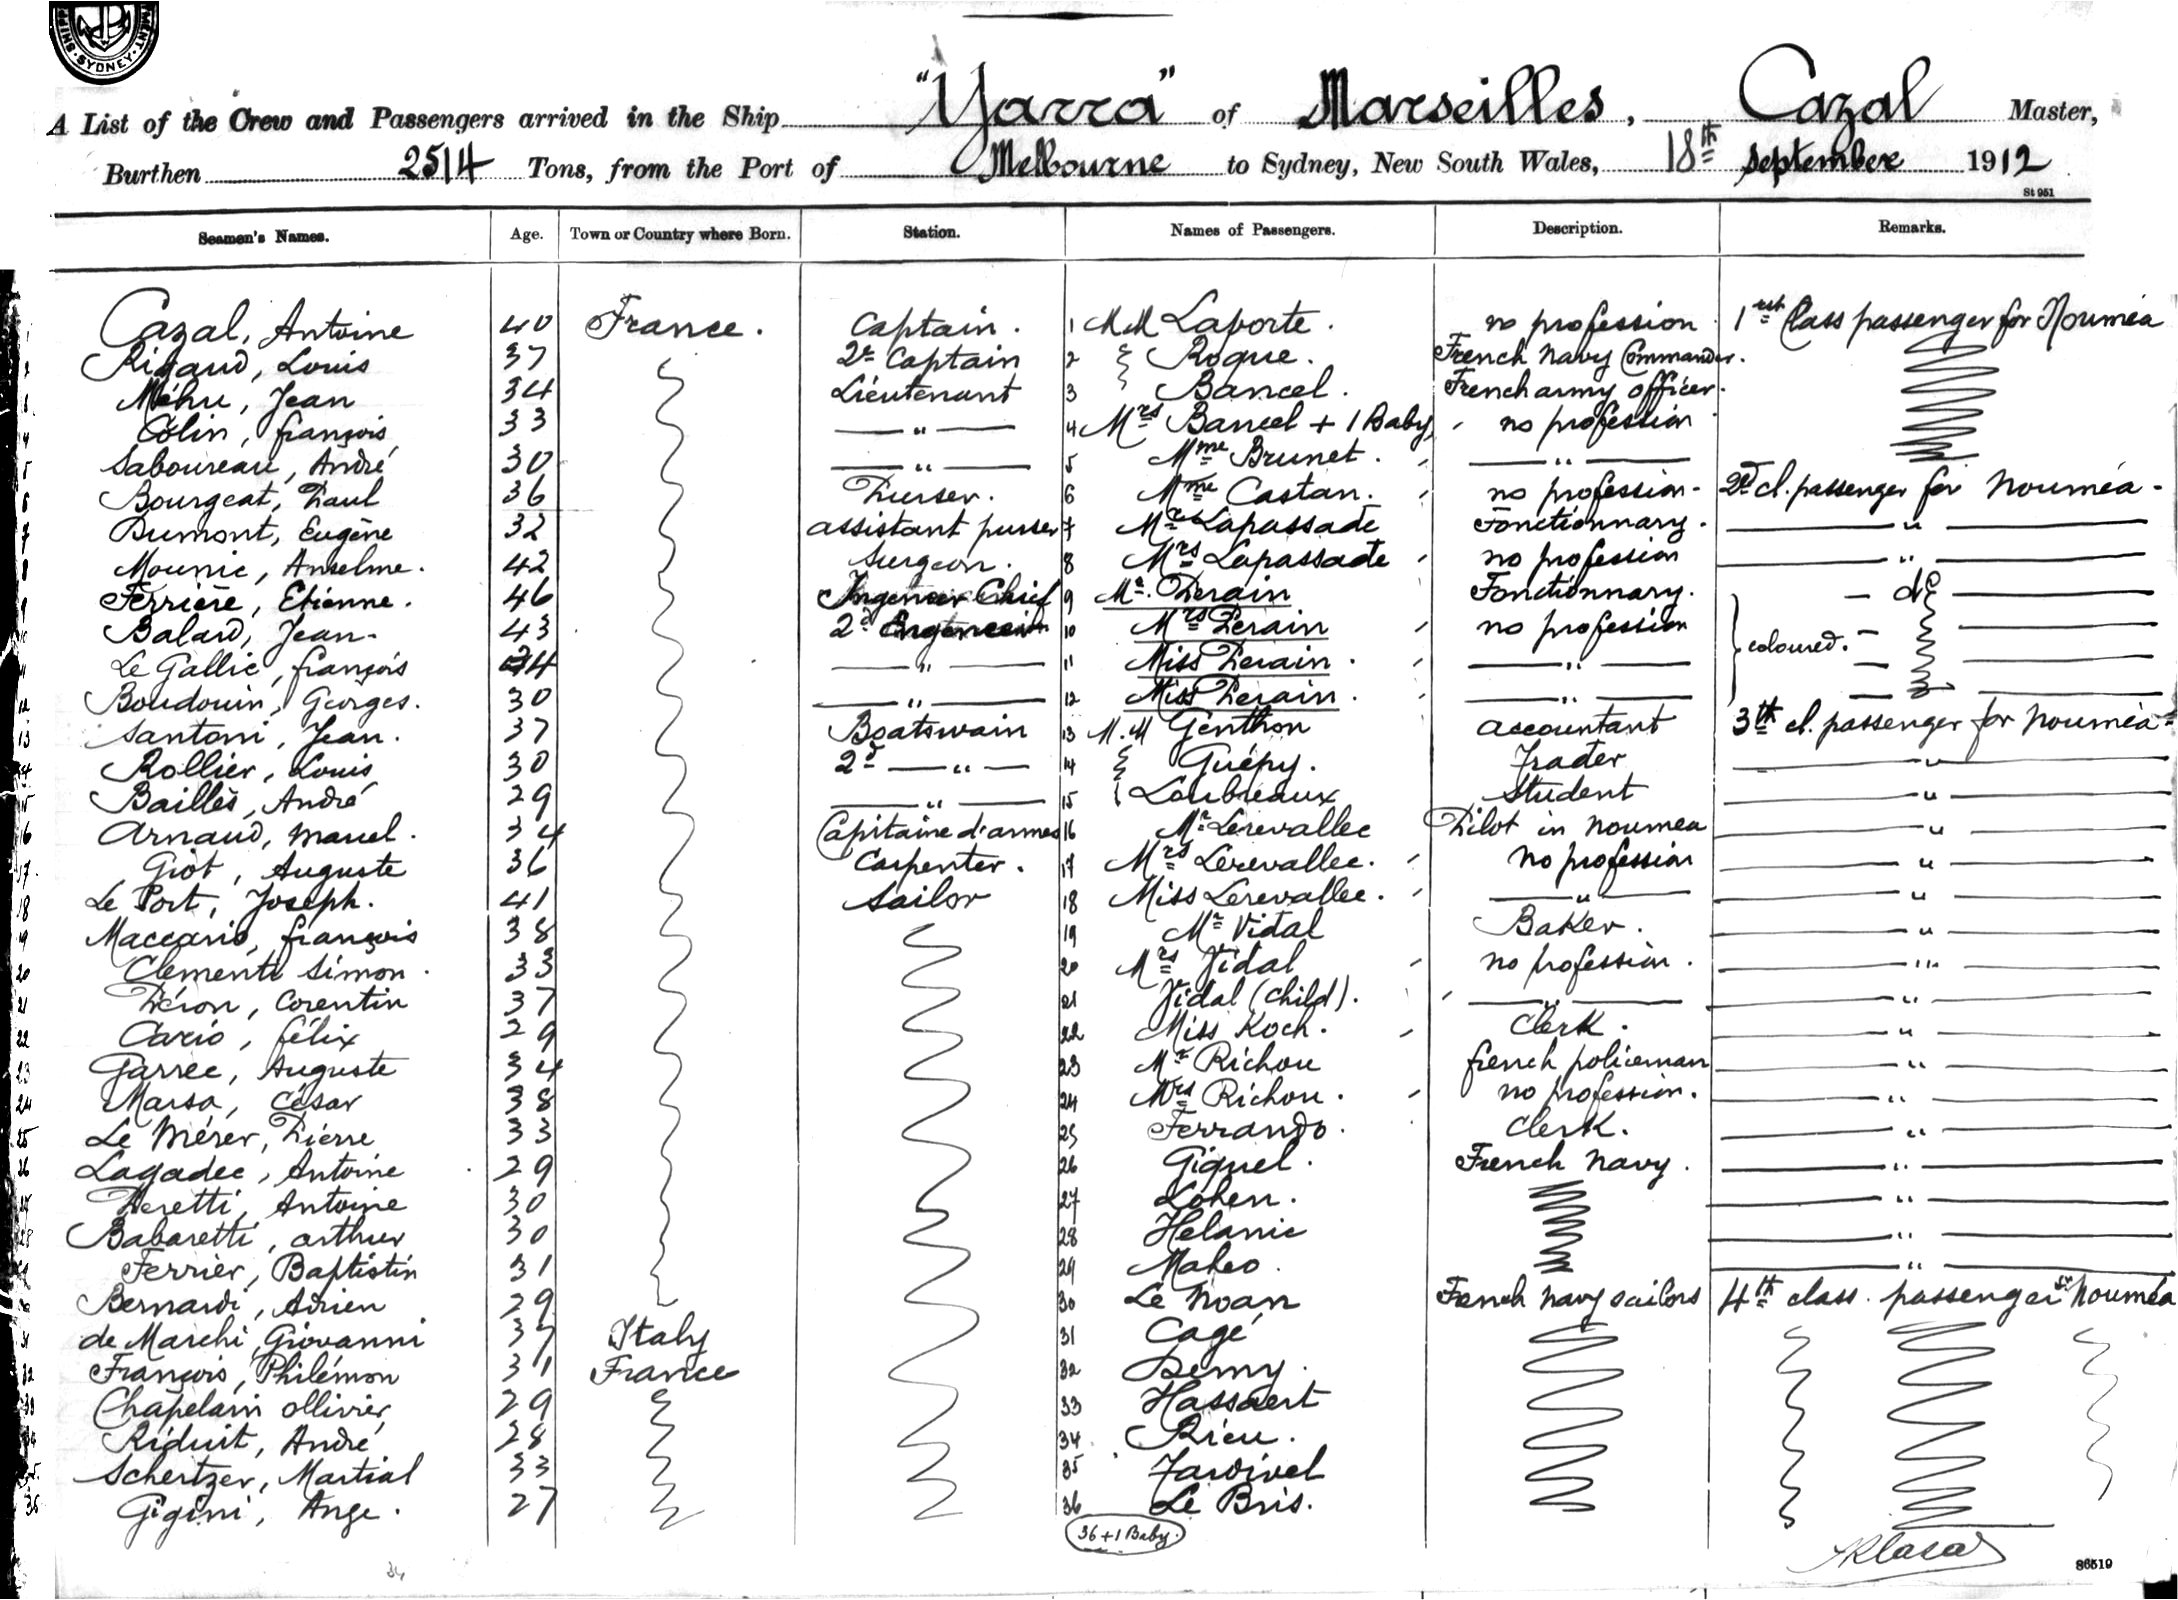 SHIP · MENT · SYDNEY ·
A List of the Crew and Passengers arrived in the Ship "Yarra" of Marseilles, Cazal Master,
Burthen 2514 Tons, from the Port of Melbourne to Sydney, New South Wales, 18th September 1912
St 951
Seamen's Names. Age. Town or Country where Born. Station. Names of Passengers. Description. Remarks.
Cazal, Antoine 40 France. Captain. 1 M M Laporte. no profession 1rst Class passenger for Nouméa
Rigaud, Louis 37 2d Captain 2 Roque. French Navy Commander.
Méhu, Jean 34 Lieutenant 3 Bancel. French army officer.
Colin, françois 33 — " — 4 Mrs Bancel + 1 Baby, no profession
Saboureau, André 30 — " — 5 Mme Brunet. — " —
Bourgeat, Paul 36 Purser. 6 Mme Castan. no profession - 2d cl. passenger for Nouméa -
Dumont, Eugène 32 assistant purser 7 Mr Lapassade Fonctionnary. — " —
Mounic, Anselme. 42 Surgeon. 8 Mrs Lapassade no profession — " —
Ferrière, Etienne. 46 Ingeneer Chief 9 Mr. Perain Fonctionnary. — do —
Balard, Jean- 43 2d 10 Mrs Perain no profession coloured. —
Le Gallic, françois 34 — " — 11 Miss Perain. — " — —
Boudouin, Georges. 30 — " — 12 Miss Perain. — " — —
Santoni, Jean. 37 Boatswain 13 M. M Genthon accountant 3th cl. passenger for Nouméa -
Rollier, Louis 30 2d — " — 14 Guépy. Trader — " —
Baillès, André 29 — " — 15 Loubreaux Student — " —
Arnaud, Marcel. 34 Capitaine d'armes 16 Mr Lerevallee Pilot in Noumea — " —
Giot, Auguste 36 Carpenter. 17 Mrs Lerevallee. no profession — " —
Le Port, Joseph. 41 Sailor 18 Miss Lerevallee. — " — — " —
Maccario, françois 38 19 Mr Vidal Baker. — " —
Clementi Simon. 33 20 Mrs Vidal no profession. — " —
Péron, Corentin 37 21 Vidal (child). — " — — " —
Cario, félix 29 22 Miss Koch. Clerk. — " —
Garrec, Auguste 34 23 Mr Richou french policeman — " —
Marsa, César 38 24 Mrs Richou. no profession. — " —
Le Mérer, Pierre 33 25 Ferrando. Clerk. — " —
Lagadec, Antoine 29 26 Giquel. French Navy. — " —
Peretti, Antoine 30 27 Lohen. — " —
Babaretti, arthur 30 28 Helanic — " —
Ferrier, Baptistin 31 29 Maheo. — " —
Bernardi, Adrien 29 30 Le Noan French Navy sailors 4th class. passenger for Nouméa
de Marchi, Giovanni 37 Italy 31 Cagé
François, Philémon 31 France 32 Demy.
Chapelain ollivier, 29 33 Hassaert
Riduit, André 28 34 Rieu.
Schertzer, Martial 33 35 Jardivel
Gigini, Ange. 27 36 Le Bris.
36 + 1 Baby.
86519